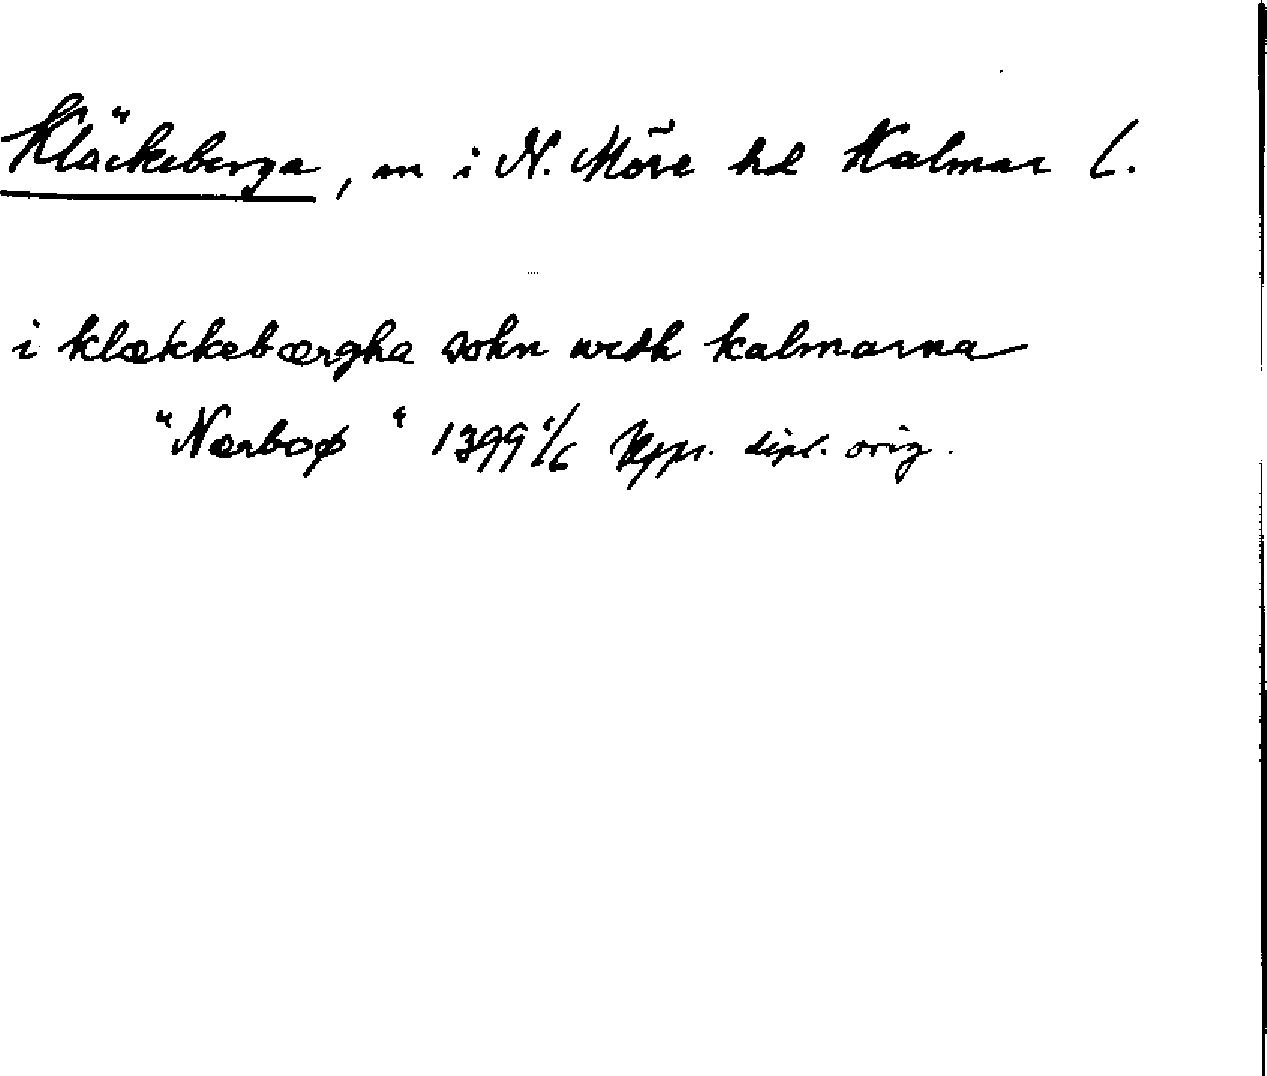 Kläckeberga, sn i N. Möre hd Kalmar l.
i klækkebærgha sokn wedh kalmarna
"Nærboø" 1399 1/6 Upps. dipl. orig.